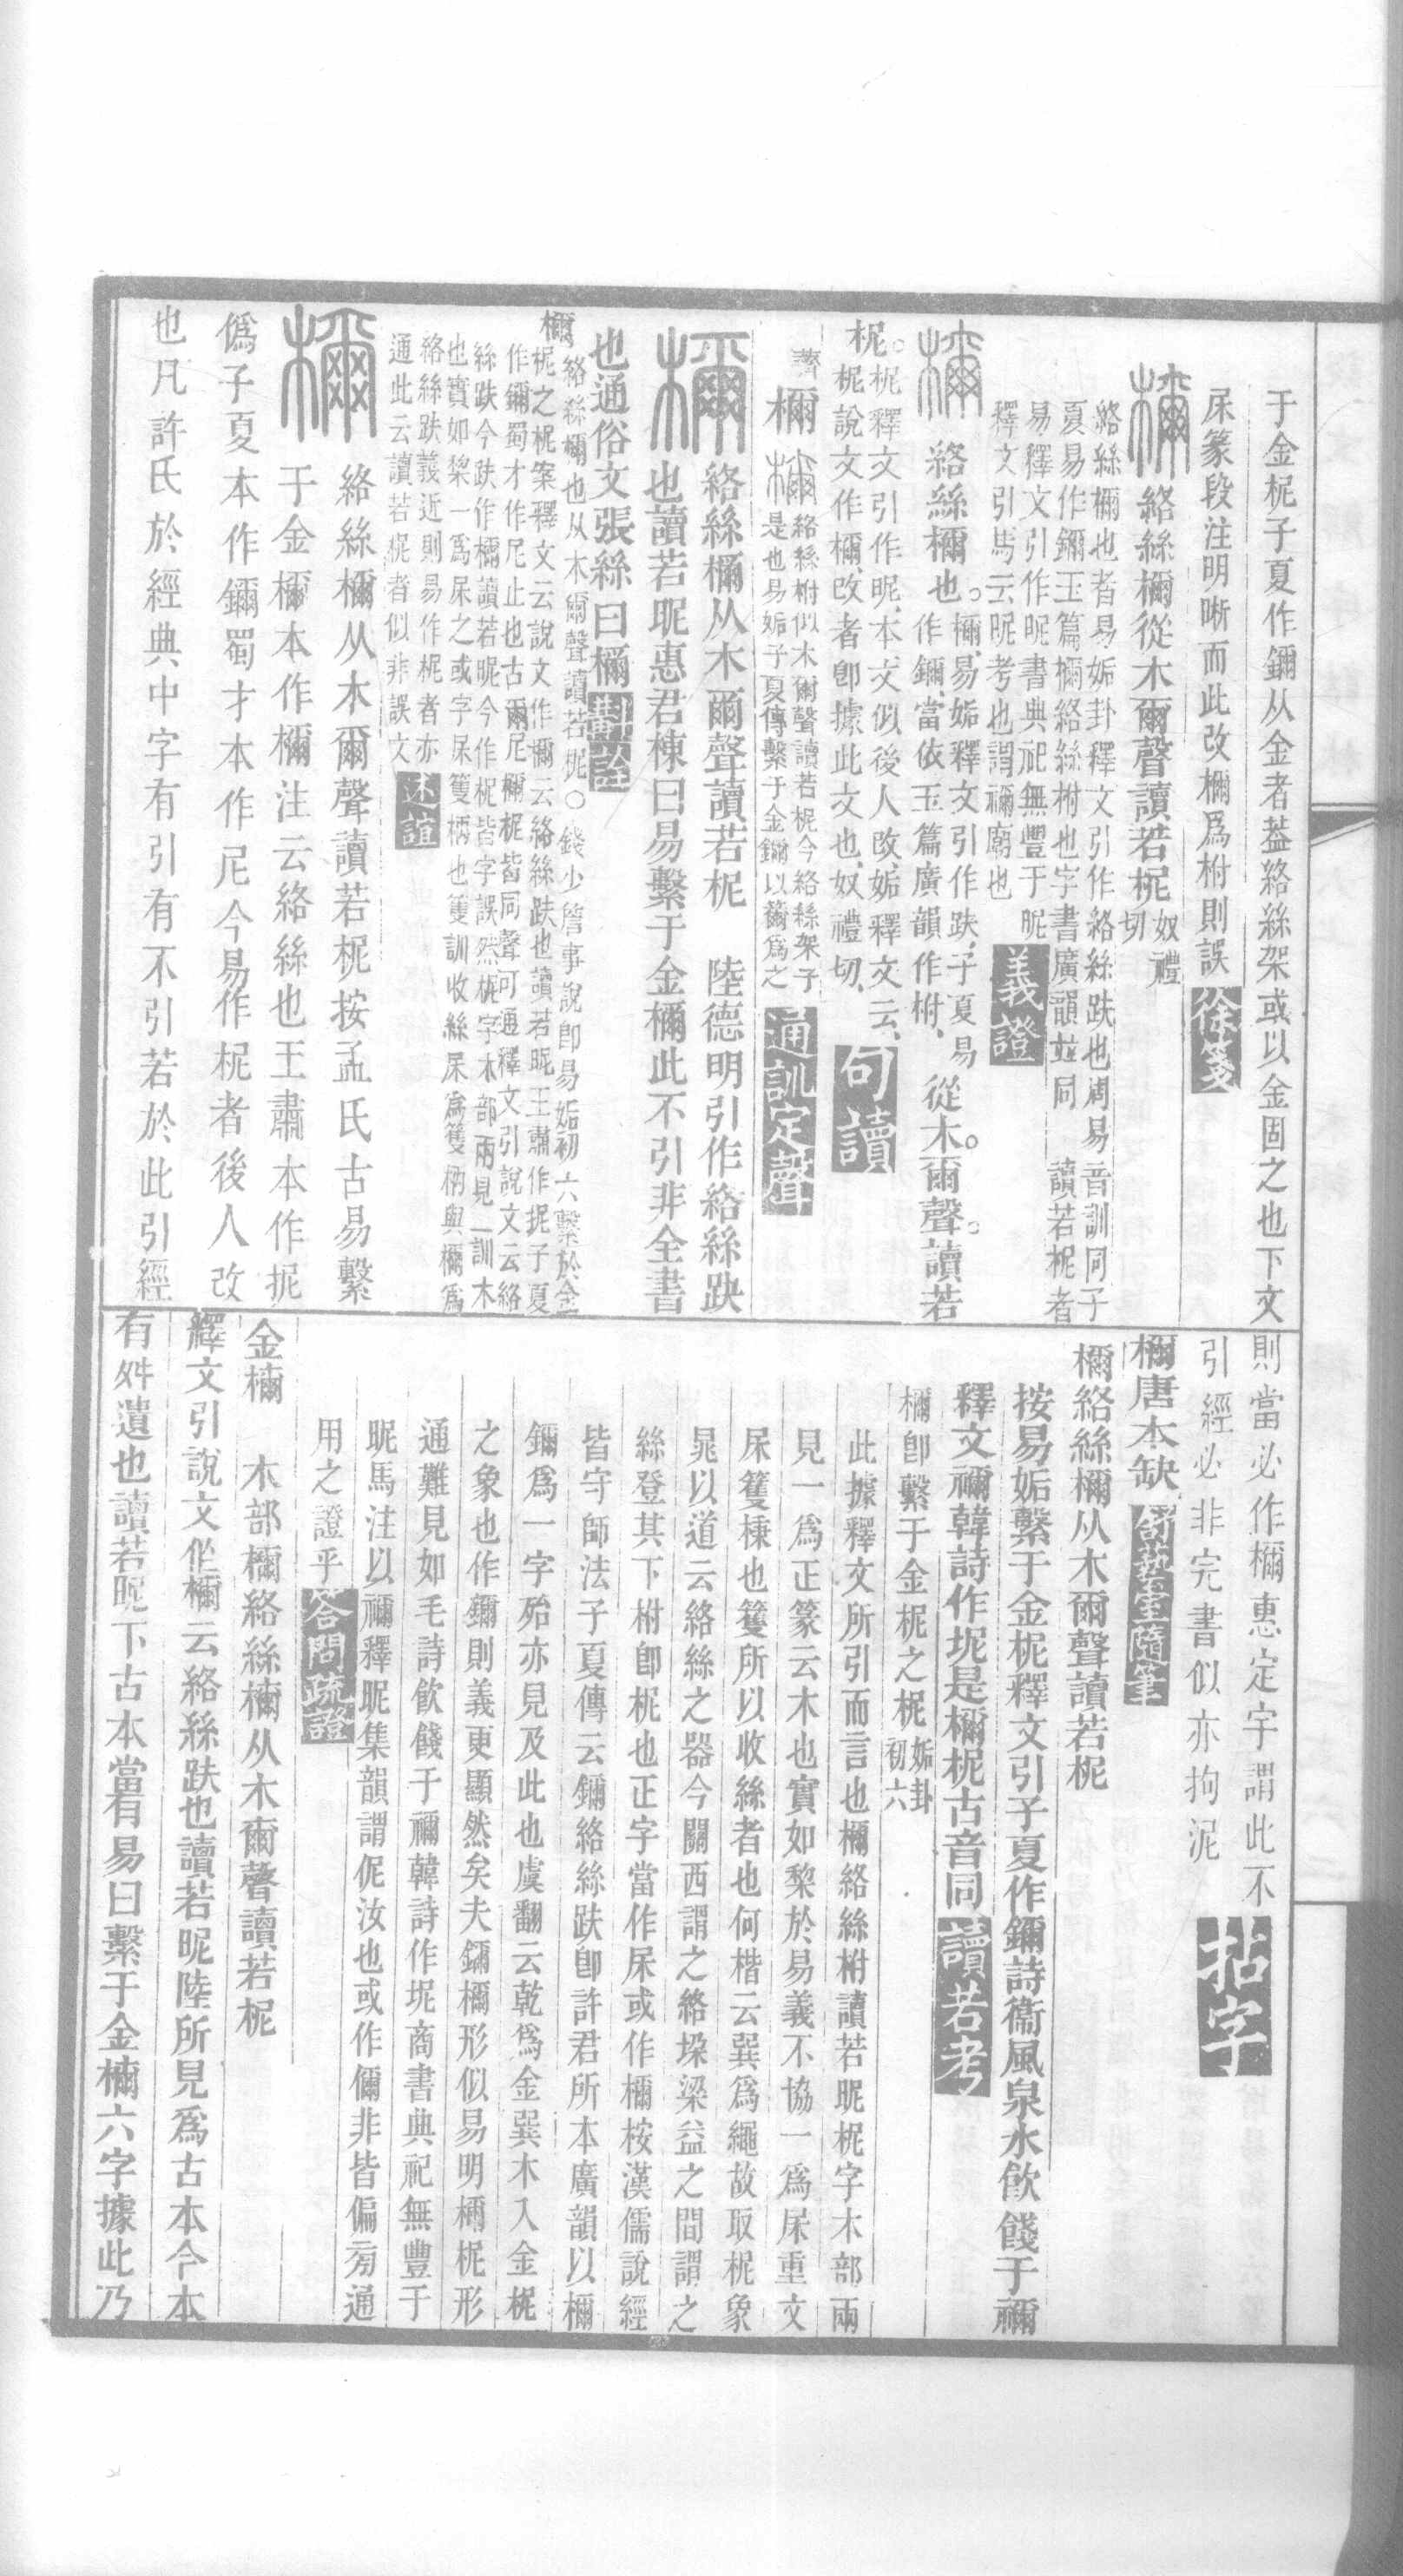 于金柅子夏作鑈从金者葢絡絲架或以金固之也下文
𣏜篆段注明晰而此改檷爲柎則誤 徐箋
檷 絡絲檷從木爾聲讀若柅 奴禮切
絡絲檷也者易姤卦釋文引作絡絲趺也周易音訓同子
夏易作鑈玉篇檷絡絲柎也字書廣韻並同 讀若柅者
易釋文引作昵書典祀無豐于昵
釋文引馬云昵考也謂禰廟也 義證
檷 絡絲檷也。檷易姤釋文引作趺、子夏易作鑈、當依玉篇廣韻作柎、 從木。爾聲。讀若
柅。柅釋文引作昵、本文似後人改、姤釋文云、柅說文作檷、改者卽據此文也、奴禮切、 句讀
檷 檷 絡絲柎似木爾聲讀若柅今絡絲架子
是也易姤子夏傳繫于金鑈以籋爲之 通訓定聲
檷 絡絲檷从木爾聲讀若柅 陸德明引作絡絲趺
也讀若昵惠君棟曰易繫于金檷此不引非全書
也通俗文張絲曰檷 斠詮
檷 絡絲檷也从木爾聲讀若柅○錢少詹事說卽易姤初六繫於金
柅之柅案釋文云說文作檷云絡絲趺也讀若昵王肅作抳子夏
作鑈蜀才作尼止也古爾尼檷柅皆同聲可通釋文引說文云絡
絲趺今趺作檷讀若昵今作柅皆字誤然柅字木部兩見一訓木
也實如棃一爲𣏜之或字𣏜籰柄也籰訓收絲𣏜爲籰柄與檷爲
絡絲趺義近則易作柅者亦
通此云讀若柅者似非誤文 述誼
檷 絡絲檷从木爾聲讀若柅按孟氏古易繫
于金檷本作檷注云絡絲也王肅本作抳
僞子夏本作鑈蜀才本作尼今易作柅者後人改
也凡許氏於經典中字有引有不引若於此引經
則當必作檷惠定宇謂此不
引經必非完書似亦拘泥 拈字
檷唐本缺 舒藝室隨筆
檷絡絲檷从木爾聲讀若柅
按易姤繫于金柅釋文引子夏作鑈詩衞風泉水飮餞于禰
釋文禰韓詩作坭是檷柅古音同 讀若考
檷卽繫于金柅之柅 姤卦初六
此據釋文所引而言也檷絡絲柎讀若昵柅字木部兩
見一爲正篆云木也實如棃於易義不協一爲𣏜重文
𣏜籰柄也籰所以收絲者也何楷云巽爲繩故取柅象
晁以道云絡絲之器今關西謂之絡垛梁益之間謂之
絲登其下柎卽柅也正字當作𣏜或作檷桉漢儒說經
皆守師法子夏傳云鑈絡絲趺卽許君所本廣韻以檷
鑈爲一字殆亦見及此也虞翻云乾爲金巽木入金柅
之象也作鑈則義更顯然矣夫鑈檷形似易明檷柅形
通難見如毛詩飮餞于禰韓詩作坭商書典祀無豐于
昵馬注以禰釋昵集韻謂伲汝也或作儞非皆偏旁通
用之證乎 答問疏證
金檷 木部檷絡絲檷从木爾聲讀若柅
繹文引說文作檷云絡絲趺也讀若昵陸所見爲古本今本
有舛遺也讀若昵下古本當有易曰繫于金檷六字據此乃